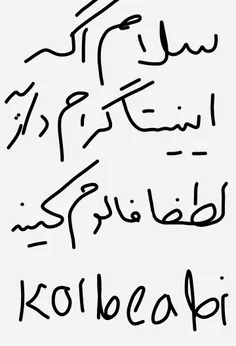 سلام اگه
اینیستاگرام دارین
لطفا فالوم کنید
kolbeabi